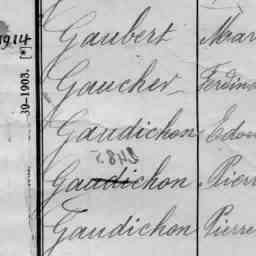 1914
Gaubert Mar
Gaucher Ferdina
Gaudichon Edou
Gaudichon Pierr
Gaudichon Pierre
39-1903. [*]